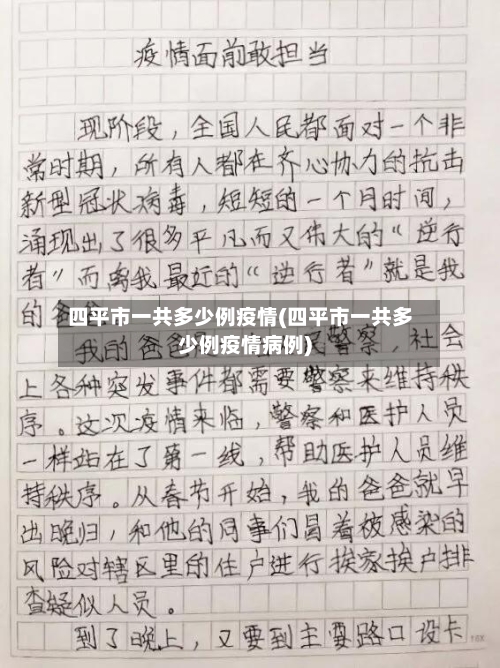 疫情面前敢担当
现阶段，全国人民都面对一个非
常时期，所有人都在齐心协力的抗击
新型冠状病毒，短短的一个月时间，
涌现出了很多平凡而又伟大的“逆行
者”而离我最近的“逆行者”就是我
的爸爸
四平市一共多少例疫情(四平市一共多
少例疫情病例)
我的爸爸 警察，社会
上各种突发事件都需要警察来维持秩
序。这次疫情来临，警察和医护人员
一样站在了第一线，帮助医护人员维
持秩序。从春节开始，我的爸爸就早
出晚归，和他的同事们冒着被感染的
风险对辖区里的住户进行挨家挨户排
查疑似人员。
到了晚上，又要到主要路口设卡